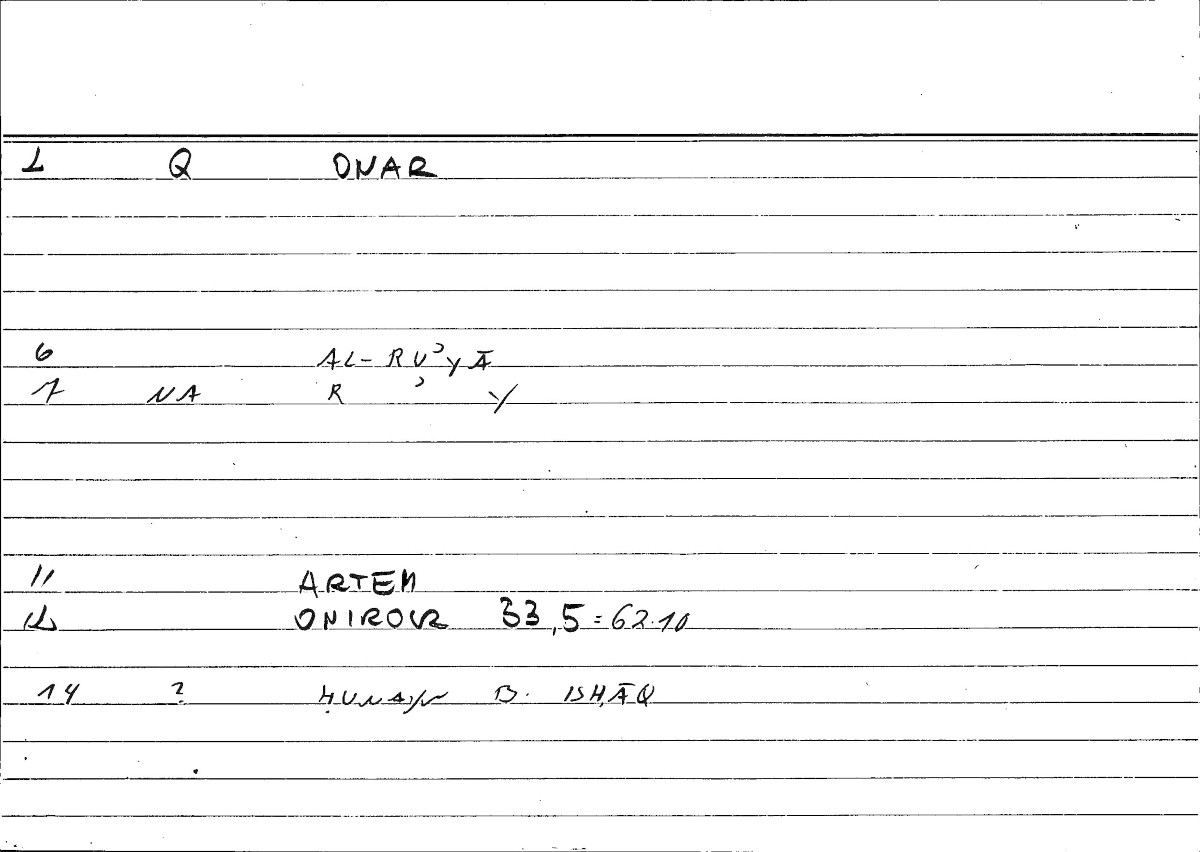 1 Q ONAR
6 AL-RUʾYĀ
7 NA R ʾ Y
11 ARTEM
12 ONIROCR 33,5=62.10
14 ? ḤUNAYN B. ISḤĀQ